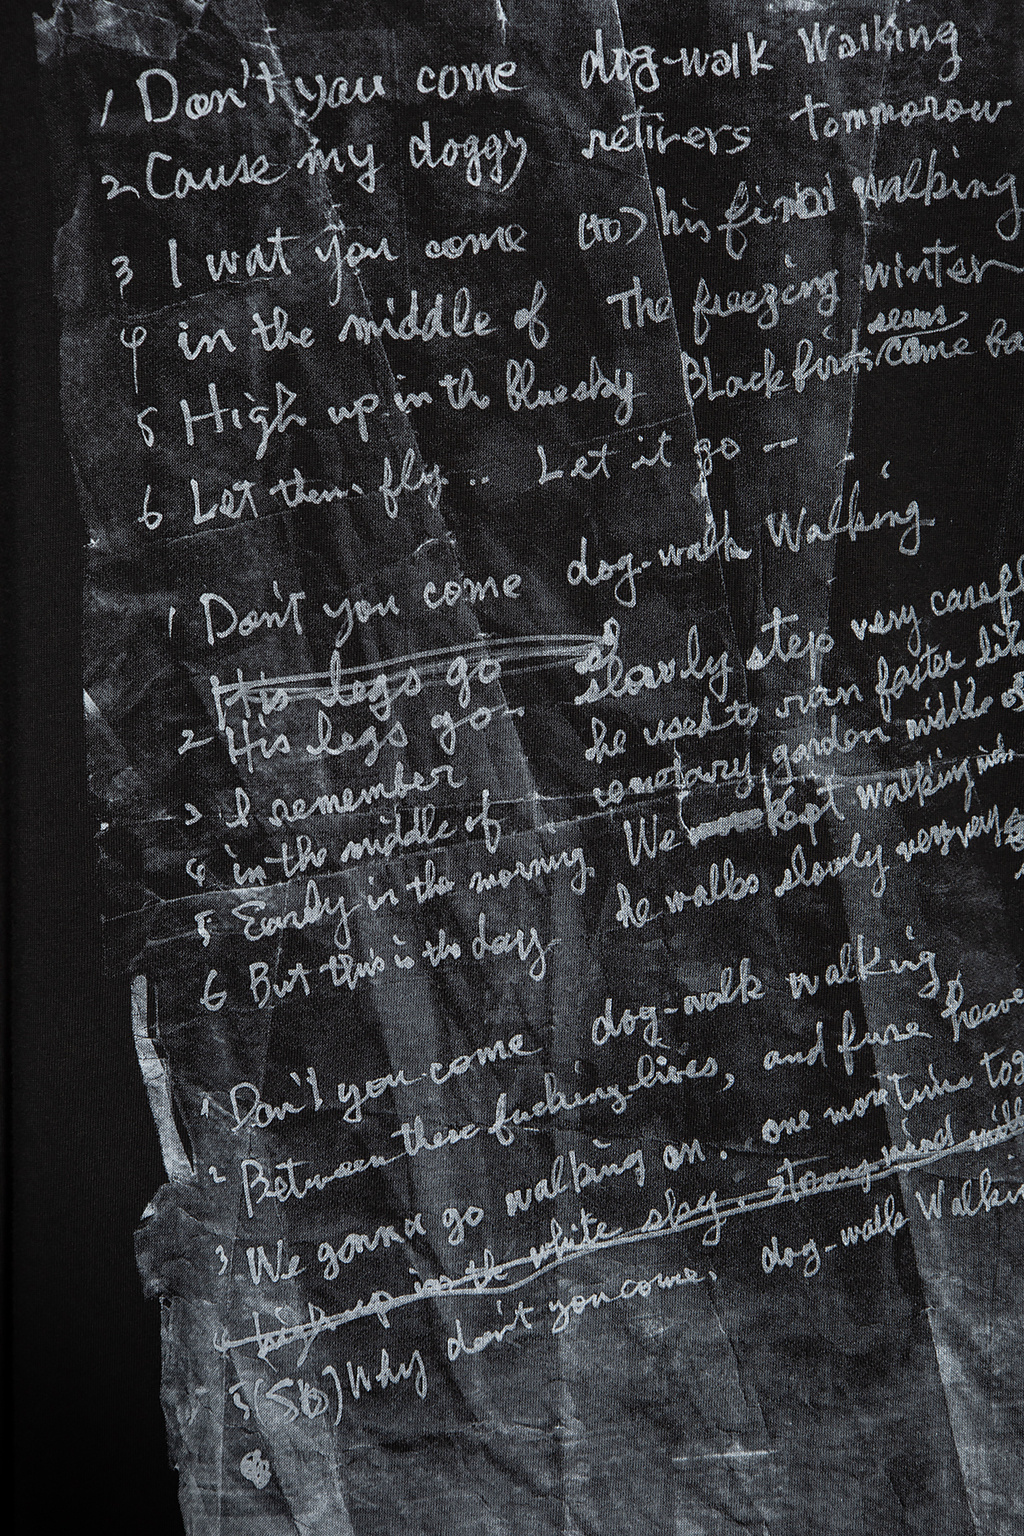 1 Don't you come dog-walk Walking
2 Cause my doggy retirers tommorow
3 I wat you come (to) his final walking
4 in the middle of The freezing winter
seems
5 High up in the blue sky Black come ba
6 Let them fly.. Let it go --
1 Don't you come dog-walk Walking
His legs go
2 His legs go- slowly step very carefl
3 I remember he used to ran faster lik
4 in the middle of garden middle of
5 Early in the morning We kept walking
6 But this is the day he walks slowly very very
1 Don't you come dog-walk walking
2 Between these fucking lives, and fure heave
3 We gonna go walking on. one more time tog
4 high up in the white sky. strong wind will
5 (5b) Why don't you come. dog-walk Walkin